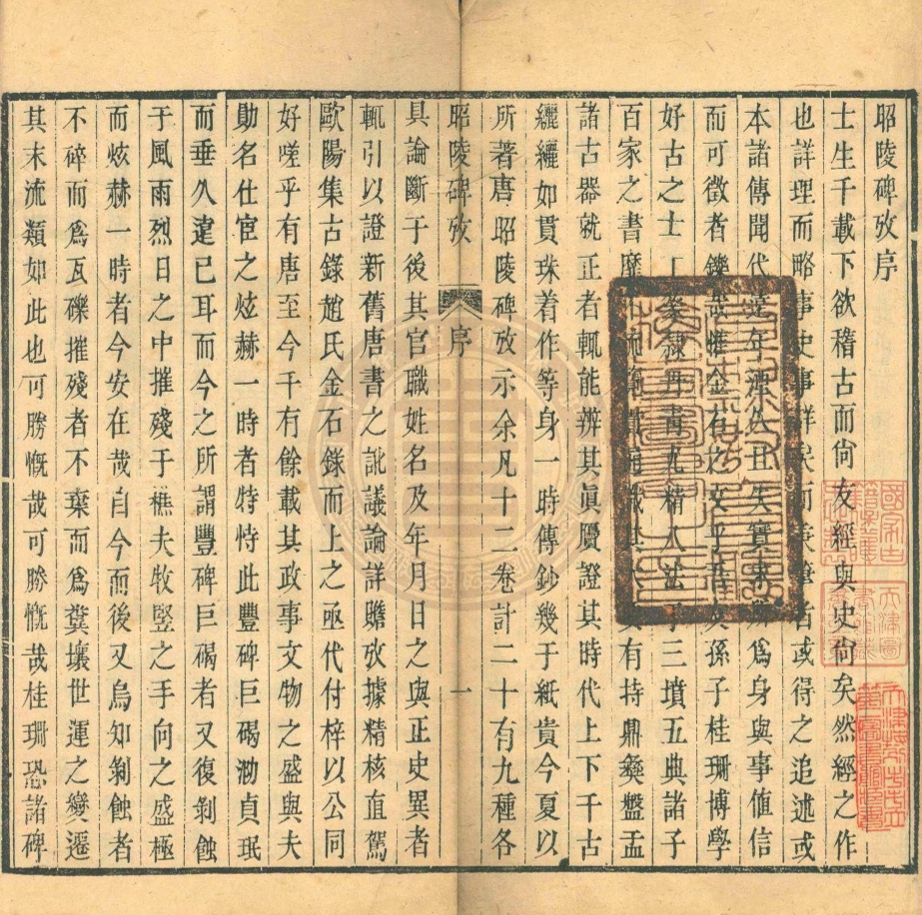 昭陵碑攷序
士生千載下欲稽古而尙友經與史尙矣然經之作
也詳理而略事史事詳矣而秉筆者或得之追述或
本諸傳聞代遠年湮久且失實求爲身與事值信
而可徵者鑠哉惟金石之文乎吾友孫子桂珊博學
好古之士工篆隸丹靑尤精八法于三墳五典諸子
百家之書靡不流覽貫通識其有持鼎彝盤盂
諸古器就正者輒能辨其眞贋證其時代上下千古
纚纚如貫珠着作等身一時傳鈔幾于紙貴今夏以
所著唐昭陵碑攷示余凡十二卷計二十有九種各
昭陵碑攷 序 一
具論斷于後其官職姓名及年月日之與正史異者
輒引以證新舊唐書之訛議論詳贍攷據精核直駕
歐陽集古錄趙氏金石錄而上之亟代付梓以公同
好嗟乎有唐至今千有餘載其政事文物之盛與夫
勛名仕宦之炫赫一時者特恃此豐碑巨碣泐貞珉
而垂久遠已耳而今之所謂豐碑巨碣者又復剝蝕
于風雨烈日之中摧殘于樵夫牧豎之手向之盛極
而炫赫一時者今安在哉自今而後又烏知剝蝕者
不碎而爲瓦礫摧殘者不棄而爲糞壤世運之變遷
其末流類如此也可勝慨哉可勝慨哉桂珊恐諸碑